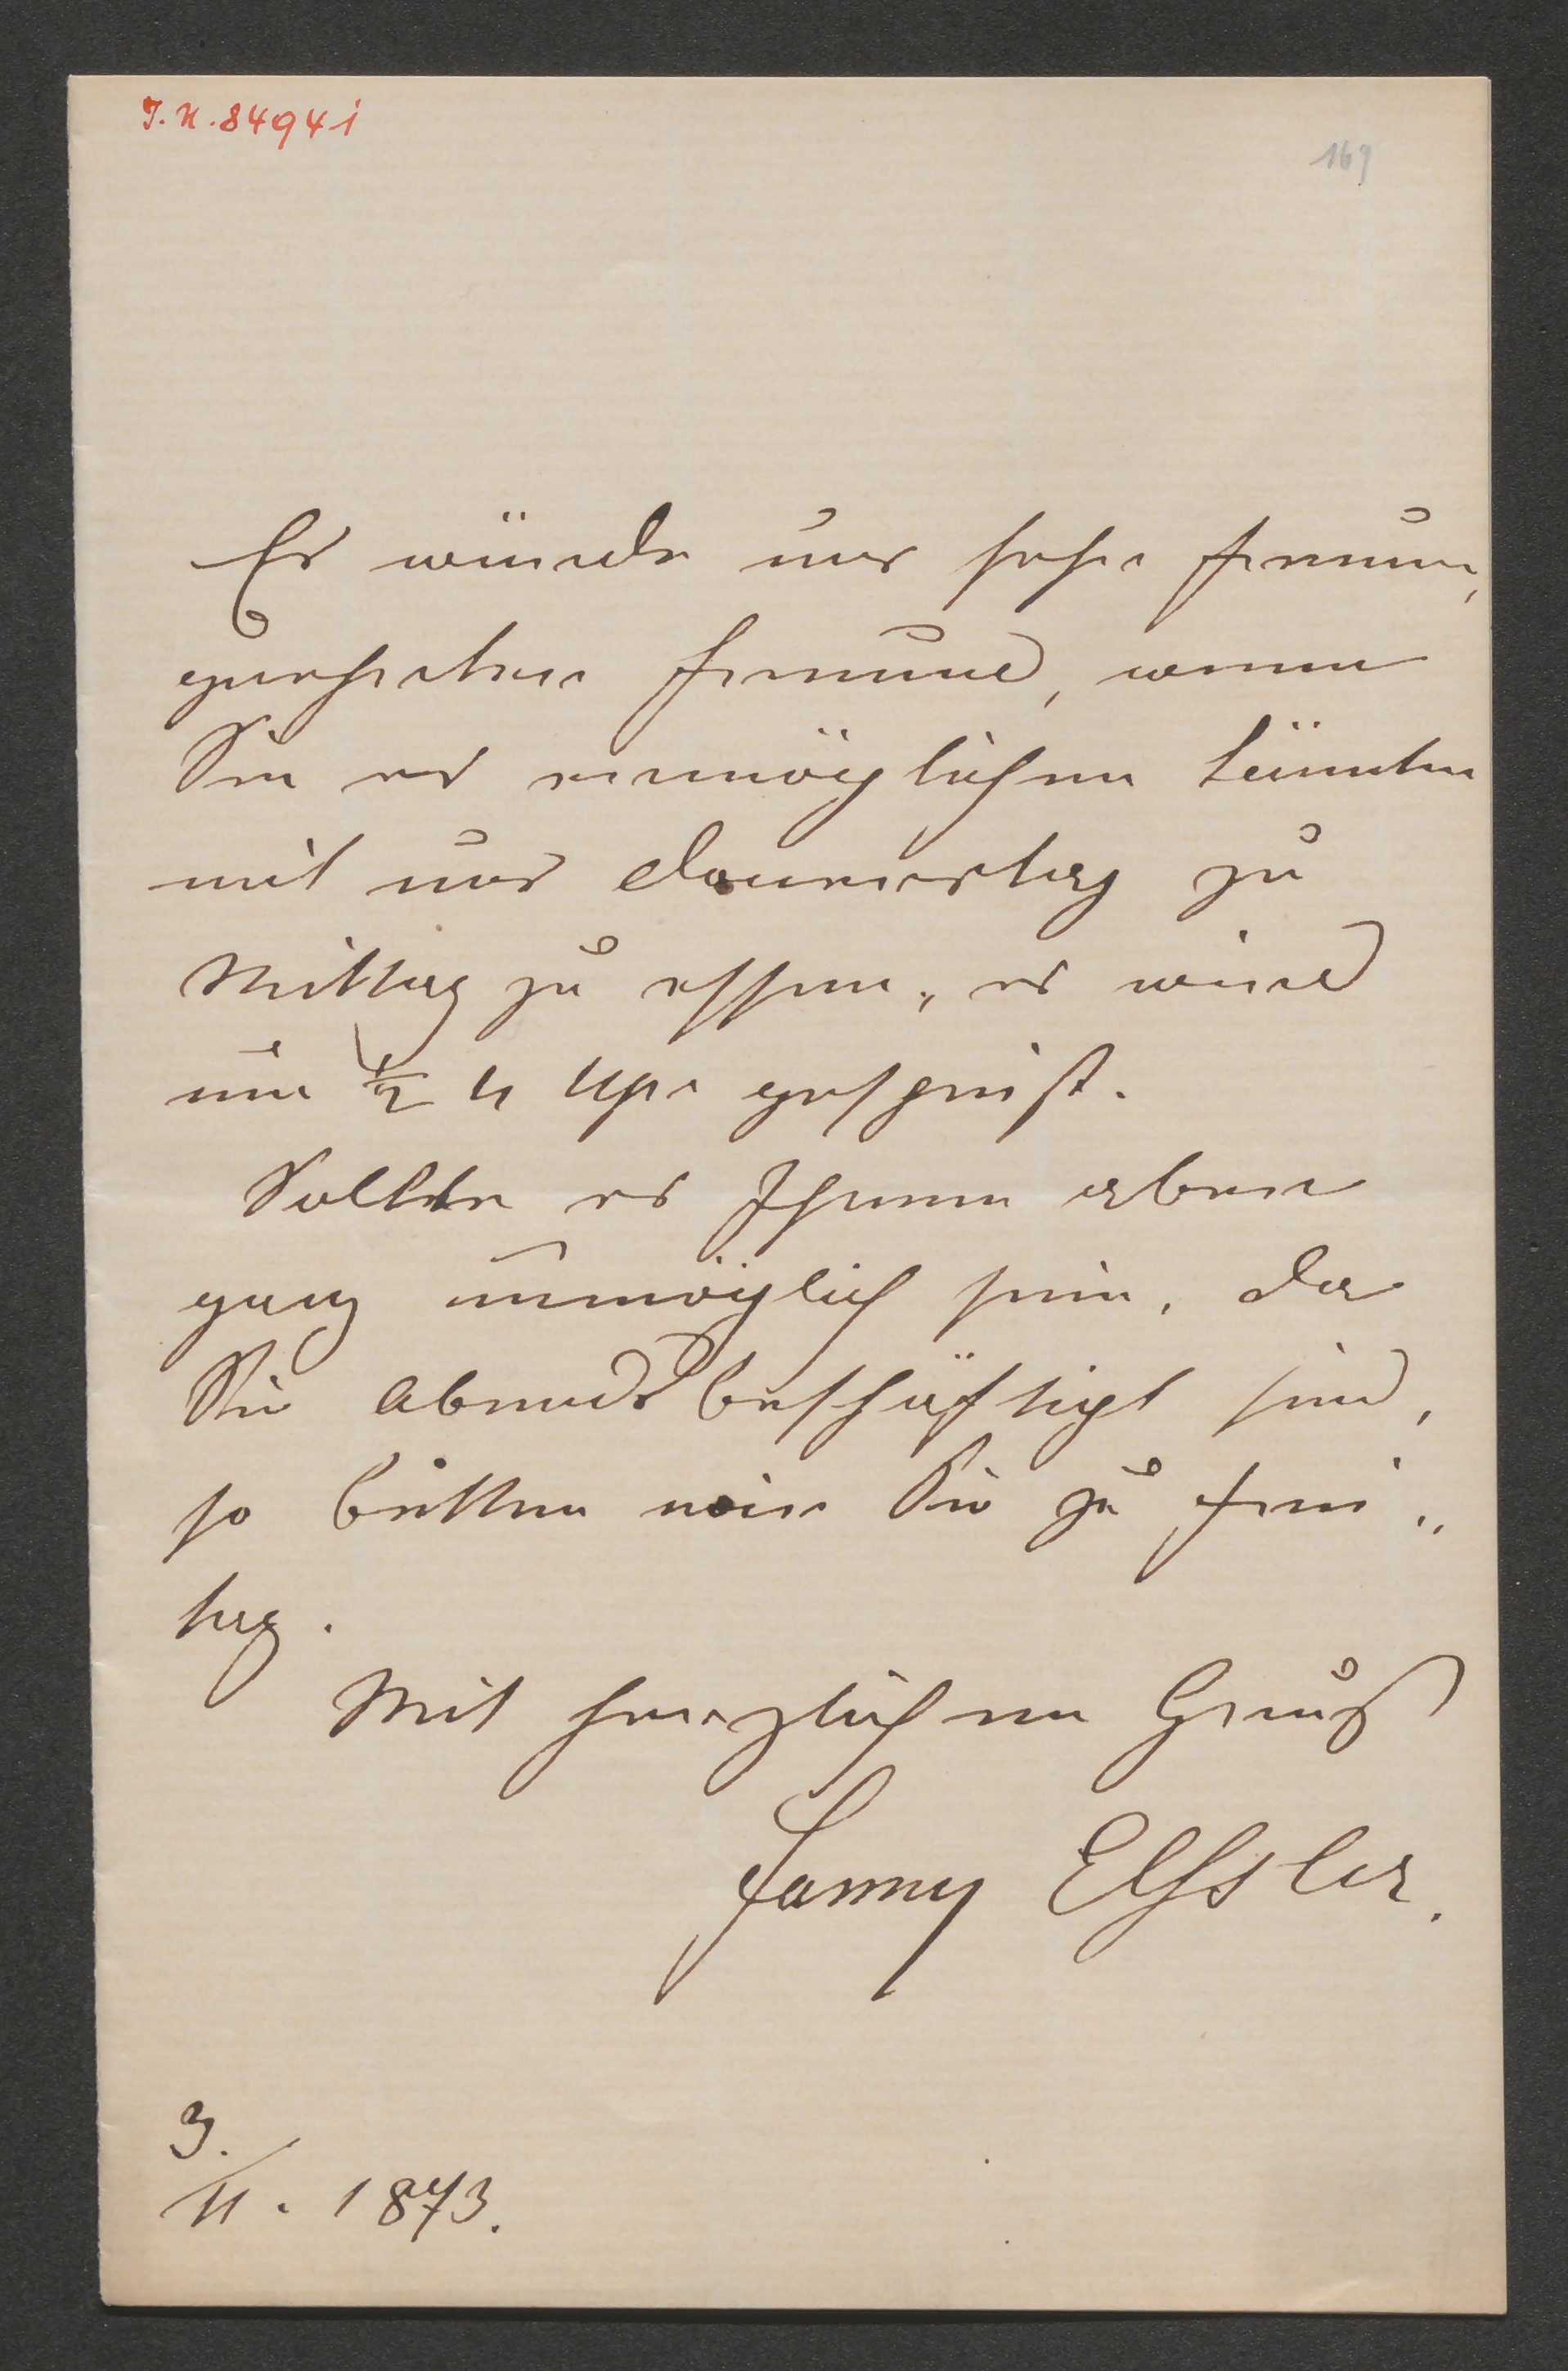 I.N. 84941
169
Es würde uns sehr freuen,
geehrter Freund, wenn
Sie es ermöglichen könnten
mit uns Donnerstag zu
Mittag zu essen, es wird
um ½ 4 Uhr gespeist.
Sollte es Ihnen aber
ganz unmöglich sein, da
Sie Abends beschäftigt sind,
so bitten wir Sie zu Frei„
tag.
Mit herzlichen Gruß
Fanny Elssler.
3.
11. 1873.